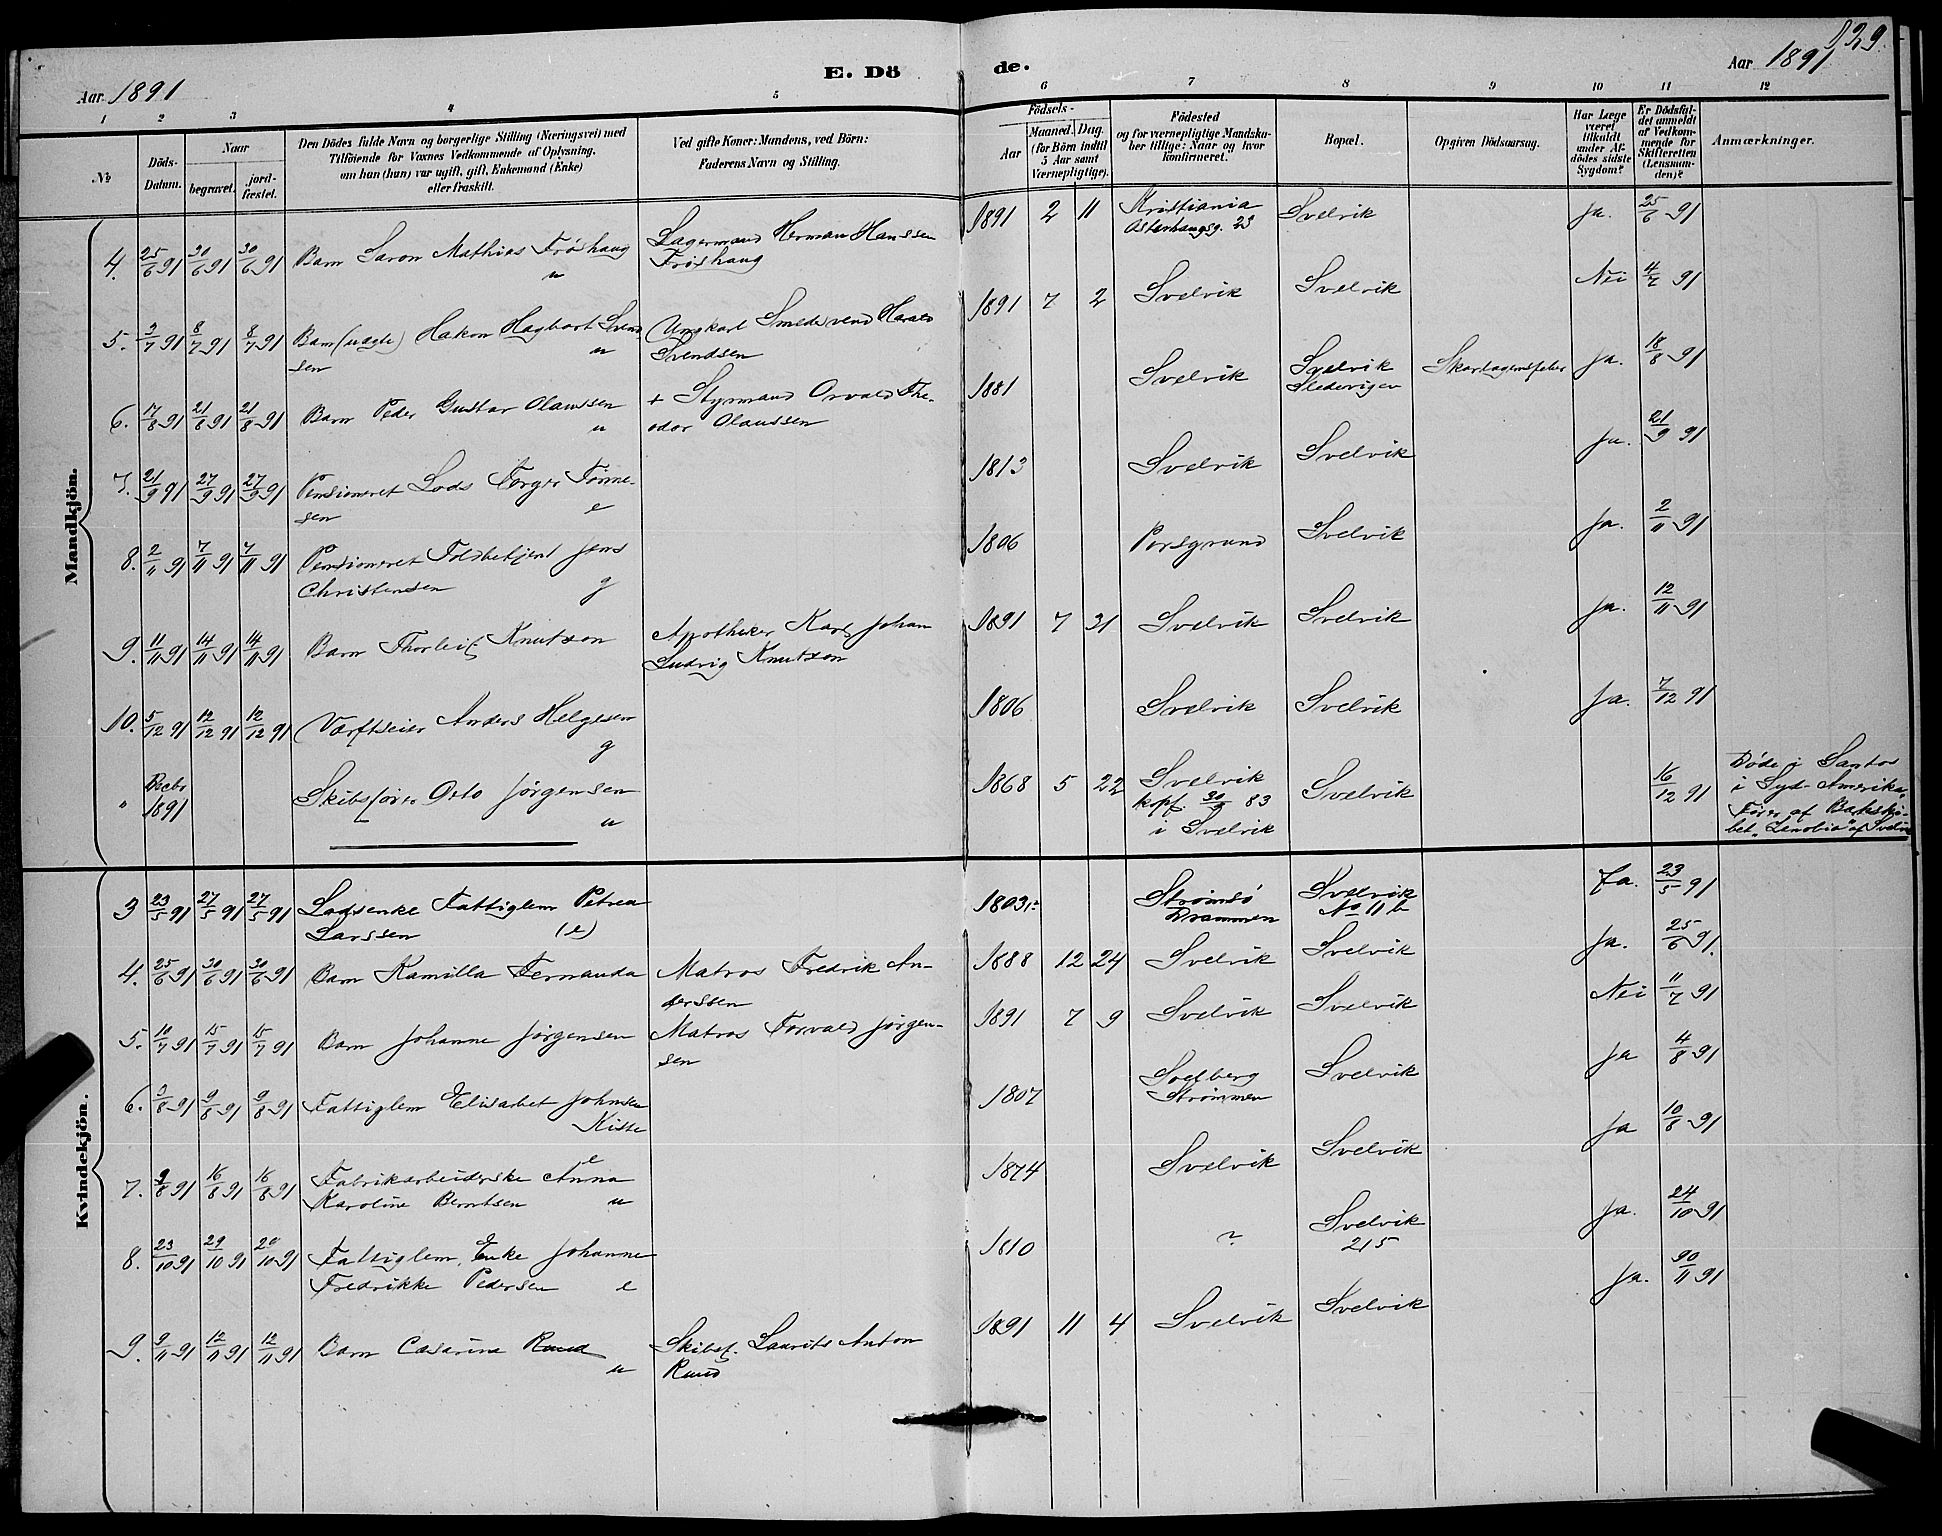 829.
E. Döde.
Aar 1891
Aar 1891
1 2 3 4 5 6 7 8 9 10 11 12
№
Döds-Datum.
Naar
begravet.
jord-fæstet.
Den Dödes fulde Navn og borgerlige Stilling (Næringsvei) med
Tilföiende for Voxnes Vedkommende af Oplysning,
om han (hun) var ugift, gift, Enkemand (Enke)
eller fraskilt.
Ved gifte Koner: Mandens, ved Börn:
Faderens Navn og Stilling.
Födsels-
Aar
Maaned. Dag.
(for Börn indtil
5 Aar samt
Værnepligtige).
Födested
og for værnepligtige Mandska-
ber tillige: Naar og hvor
konfirmeret.
Bopæl.
Opgiven Dödsaarsag.
Har Læge
været
tilkaldt
under Af-
dödes sidste
Sygdom?
Er Dödsfal-
det anmeldt
af Vedkom-
mende for
Skifteretten
(Lensman-
den)?
Anmærkninger.
Mandkjön.
4. 25/6 91 30/6 91 30/6 91 Barn Saron Mathias Frøshaug u Lagermand Herman Hanssen Frøshaug 1891 2 11 Kristiania Osterhausg. 23 Svelvik Ja. 25/6 91
5. 3/7 91 8/7 91 8/7 91 Barn (uægte) Hakon Hagbart Svendsen u Ungkarl Smedesvend Harald Svendsen 1891 7 2 Svelvik Svelvik Nei 4/7 91
6. 17/8 91 21/8 91 21/8 91 Barn Peder Gustav Olaussen u + Styrmand Orvald Theodor Olaussen 1881 Svelvik Svelvik Skarlagensfeber Ja. 18/8 91
7. 21/9 91 27/9 91 27/9 91 Pensioneret Lods Torger Tønnesen e 1813 Svelvik Svelvik Ja. 21/9 91
8. 2/11 91 7/11 91 7/11 91 Pensioneret Toldbetjent Jens Christensen g 1806 Porsgrund Svelvik Ja. 2/11 91
9. 11/11 91 14/11 91 14/11 91 Barn Thorleif Knutson Apotheker Karl Johan Ludvig Knutson 1891 7 31 Svelvik Svelvik Ja. 12/11 91
10. 5/12 91 12/12 91 12/12 91 Værftseier Anders Helgesen g 1806 Svelvik Svelvik Ja. 7/12 91
" Decbr 1891 Skibsfører Otto Jørgensen u 1868 5 22 Svelvik konf. 30/9 83 i Svelvik Svelvik 16/12 91 Døde i Santos i Syd-Amerika, Fører af Barkskibet "Zenobia" af Svelvik
Kvindekjön.
3 23/5 91 27/5 91 27/5 91 Lodsenke Fattiglem Petrea Larssen (e) 1803 Strømsø Drammen Svelvik No 11 b Ja. 23/5 91
4. 25/6 91 30/6 91 30/6 91 Barn Kamilla Fernanda Matros Fredrik Anderssen 1888 12 24 Svelvik Svelvik Ja. 25/6 91.
5. 10/7 91 15/7 91 15/7 91 Barn Johanne Jørgensen Matros Torvald Jørgensen 1891 7 9 Svelvik Svelvik Nei 11/7 91
6. 3/8 91 9/8 91 9/8 91 Fattiglem Elisabet Johnsen Kiste e 1807 Solberg Strømmen Svelvik Ja 4/8 91
7. 9/8 91 16/8 91 16/8 91 Fabrikarbeiderske Anna Karoline Berntsen u 1874 Svelvik Svelvik Ja 10/8 91
8. 23/10 91 29/10 91 29/10 91 Fattiglem, Enke Johanne Fredrikke Pedersen e 1810 ? Svelvik 215 Ja. 24/10 91
9. 9/11 91 12/11 91 12/11 91 Barn Casarine Ruud u Skibsf. Laurits Anton Ruud 1891 11 4 Svelvik Svelvik Ja. 90/11 91